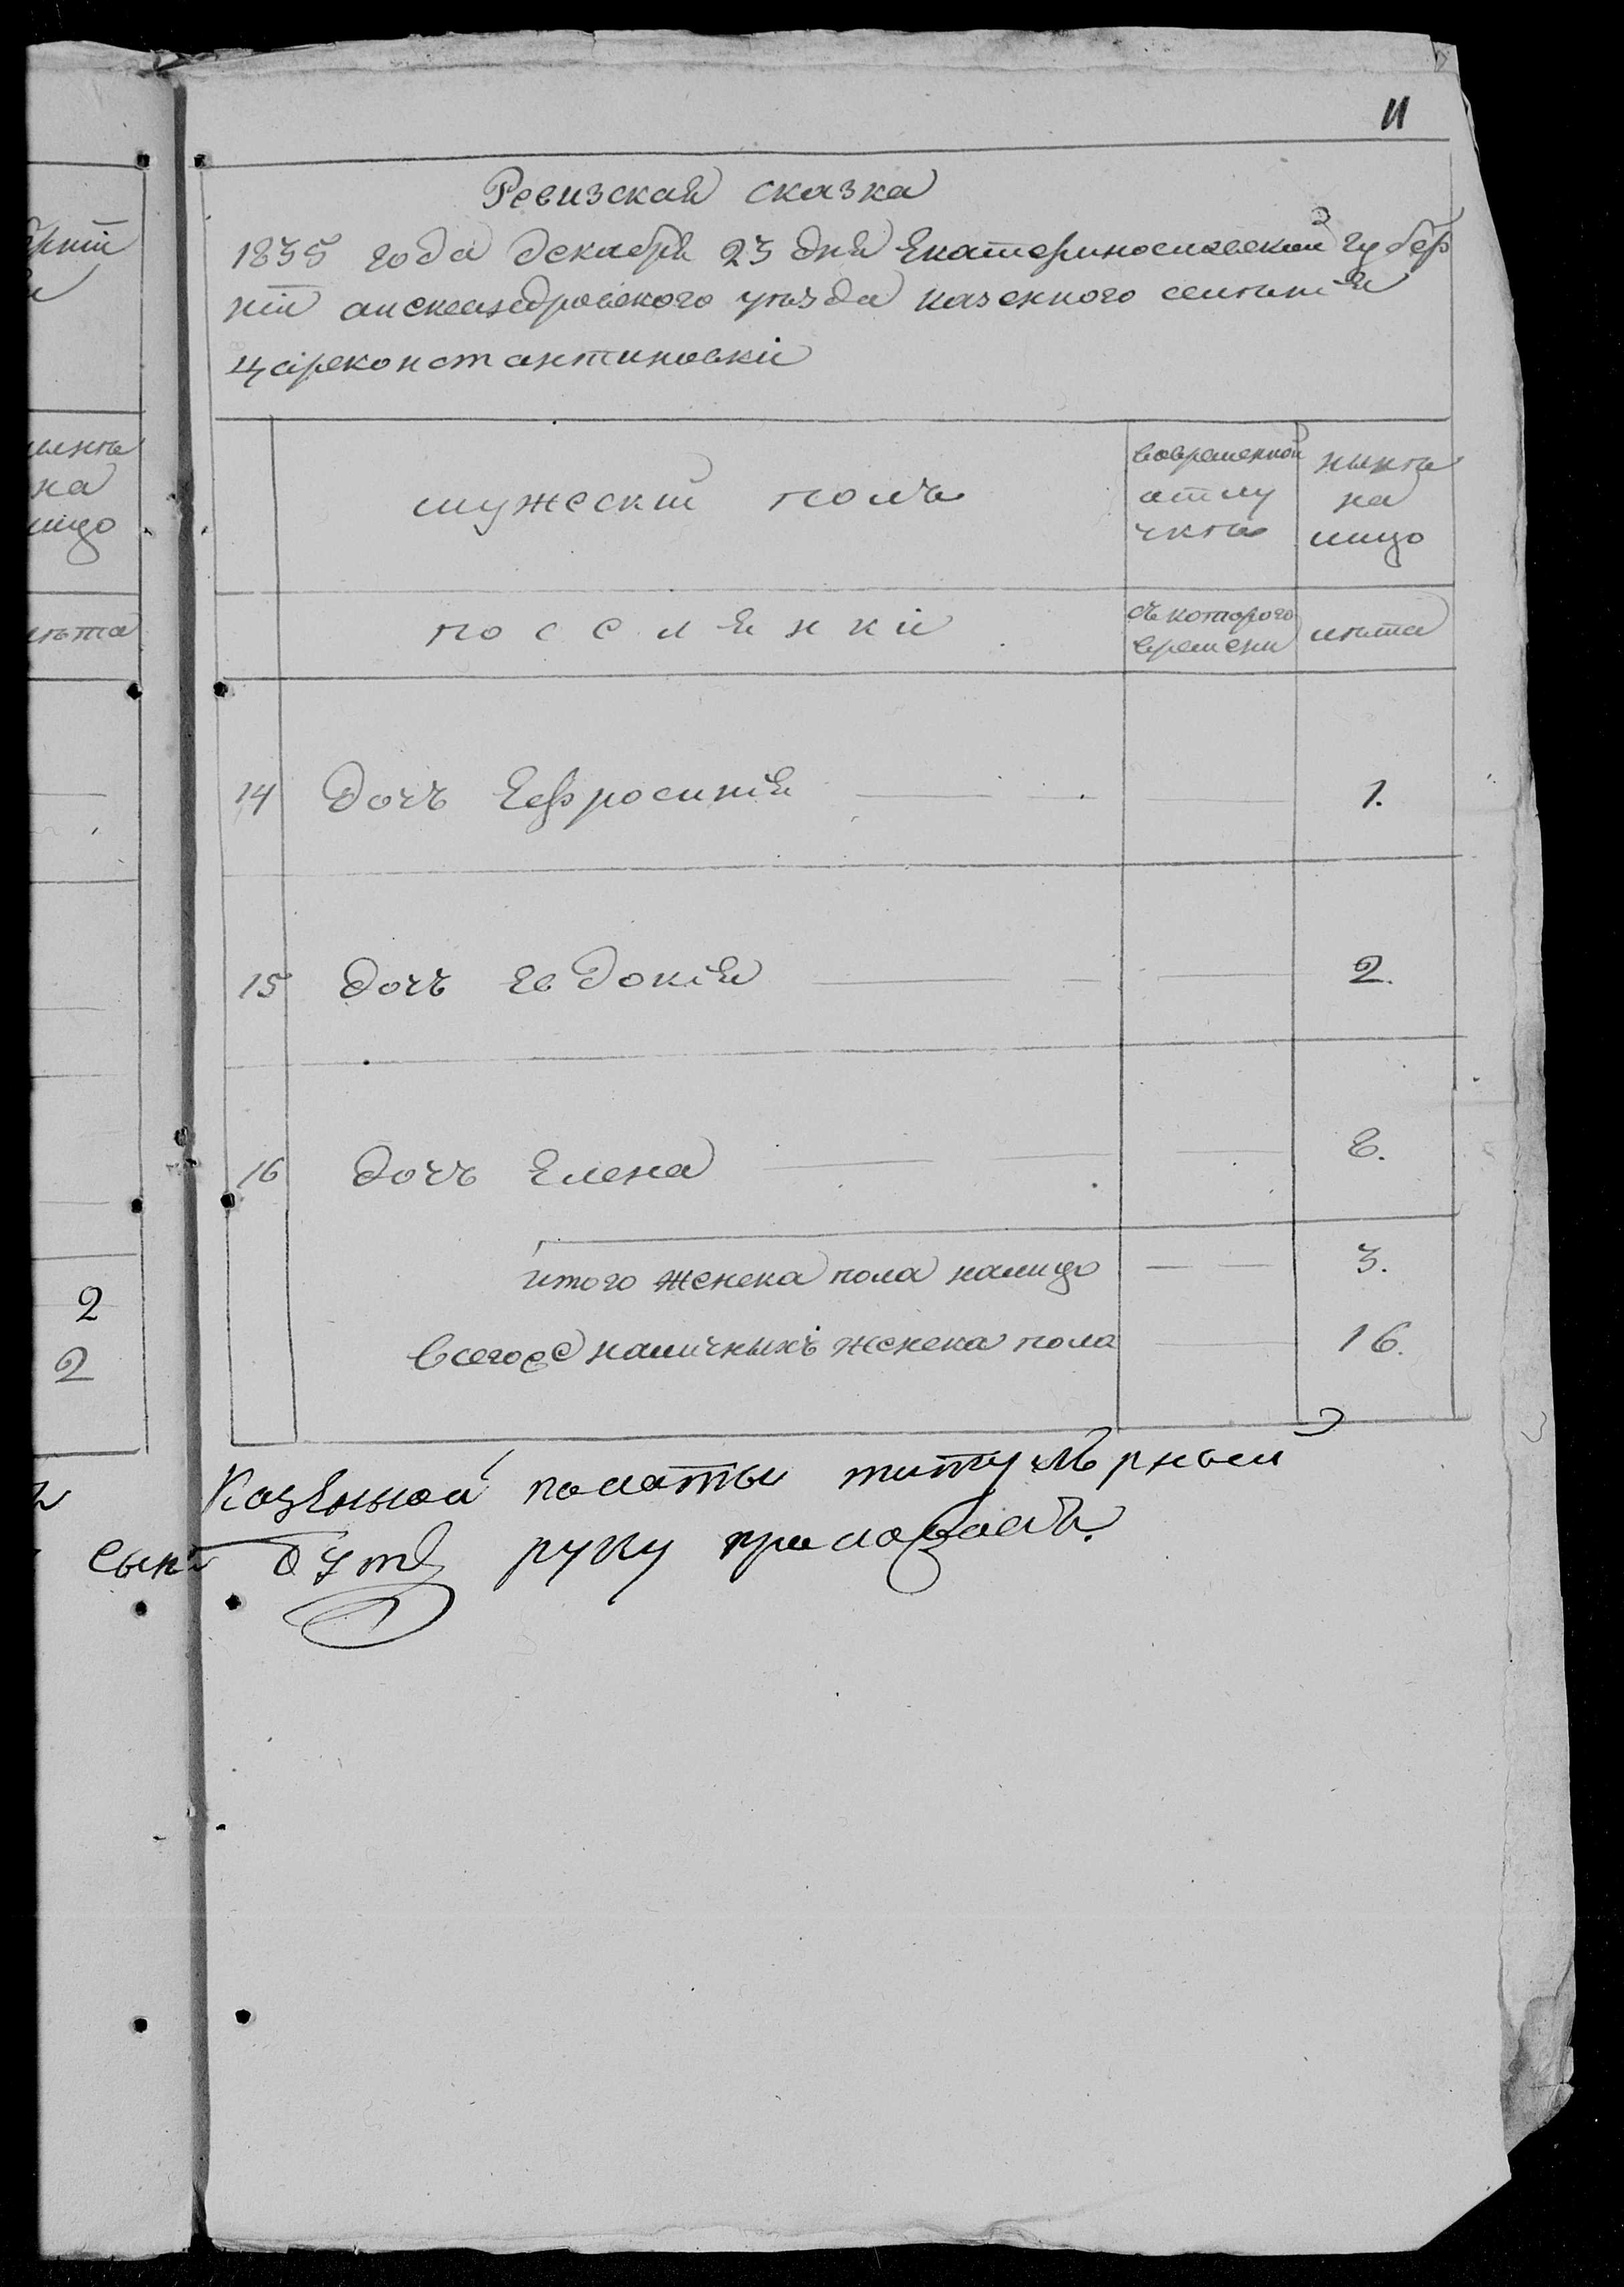 11
Ревизская сказка
1835 года декабря 23 дня Екатеринославской губер
ніи александровского уѣзда казенного селѣнія
Цареконстантиновкі
мужескій полъ
вовременной
атлу
чкѣ
нынѣ
на
лицо
посеелянкі
съ которого
времени
лѣта
14 дочъ Ефросинія 1.
15 дочъ Евдокія 2.
16 дочъ Елена
итого женска пола налицо 3.
всего наличныхъ женска пола 16.
Казенной полаты титулярной
руку приложилъ.
ерніи
нынѣ
на
лицо
лѣта
2
2
сынъ